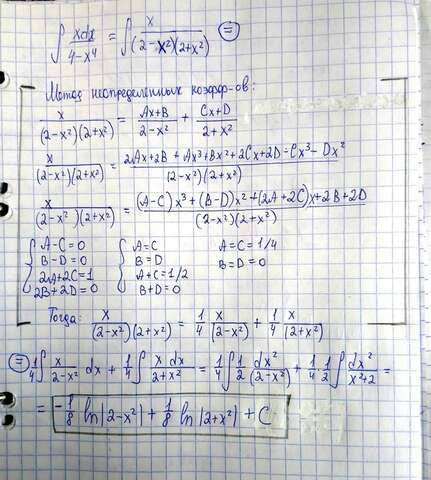 ∫ xdx / (4-x⁴) = ∫ x / ((2-x²)(2+x²)) ⊜
Метод неопределенных коэфф-ов:
x / ((2-x²)(2+x²)) = (Ax+B) / (2-x²) + (Cx+D) / (2+x²)
x / ((2-x²)(2+x²)) = (2Ax+2B + Ax³+Bx²+2Cx+2D-Cx³-Dx²) / ((2-x²)(2+x²))
x / ((2-x²)(2+x²)) = ((A-C)x³+(B-D)x²+(2A+2C)x+2B+2D) / ((2-x²)(2+x²))
{ A-C=0 { A=C A=C=1/4
B-D=0 B=D B=D=0
2A+2C=1 A+C=1/2
2B+2D=0 B+D=0
Тогда: x / ((2-x²)(2+x²)) = 1/4 x / (2-x²) + 1/4 x / (2+x²)
⊜ 1/4 ∫ x / (2-x²) dx + 1/4 ∫ x dx / (2+x²) = 1/4 ∫ 1/2 dx² / (2-x²) + 1/4 · 1/2 ∫ dx² / (x²+2) =
= -1/8 ln|2-x²| + 1/8 ln|2+x²| + C